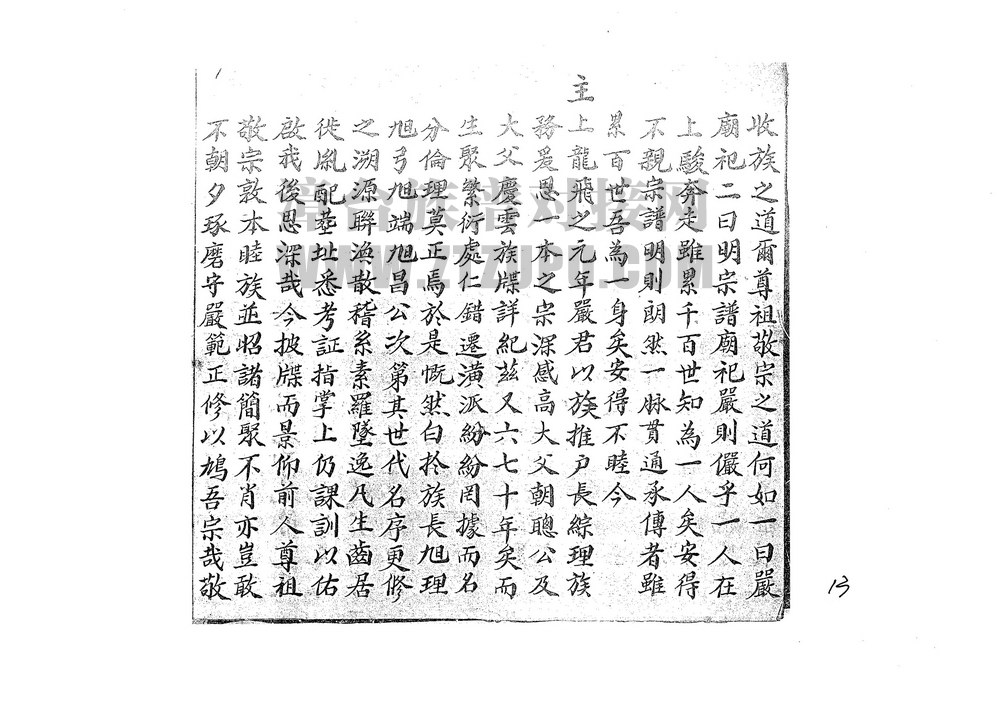 收族之道爾尊祖敬宗之道何如一曰嚴
廟祀二曰明宗譜廟祀嚴則儼乎一人在
上駿奔走雖累千百世知為一人矣安得
不親宗譜明則朗然一脉貫通承傳者雖
累百世吾為一身矣安得不睦今
主上龍飛之元年嚴君以族推户長綜理族
務爰思一本之宗深感高大父朝聰公及
大父慶雲族牒詳紀茲又六七十年矣而
生聚繁衍處仁錯遷潢派紛紛罔據而名
分倫理莫正焉於是慨然白於族長旭理
旭弓旭端旭昌公次第其世代名序更修
之溯源聯渙散稽系素羅墜逸凡生齒居
徙胤配塟址悉考証指掌上仍課訓以佑
啟我後思深哉今披牒而景仰前人尊祖
敬宗敦本睦族並昭諸簡聚不肖亦豈敢
不朝夕琢磨守嚴範正修以鳩吾宗哉敬
13
尋合族譜对接网
WWW.712JPU.COM